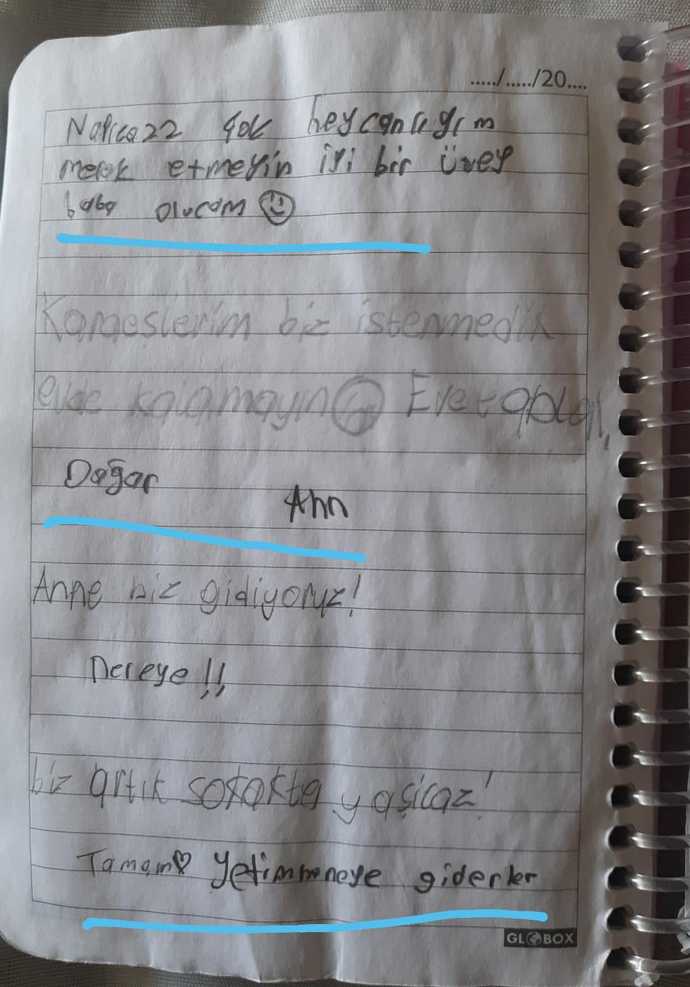 ...../...../20....
çok heycanlıyım
merak etmeyin iyi bir üvey
baba olucam
Kardeşlerim biz istenmedik
evde kalamayın Evet abla,
Doğar Ahh
Anne biz gidiyoruz!
Nereye!!
biz artık sokakta yaşicaz!
Tamam♡ yetimhaneye giderler
GLOBOX